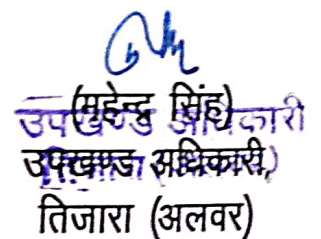 (महेन्द्र सिंह)
उपखण्ड अधिकारी
उपखण्ड अधिकारी,
तिजारा (अलवर)